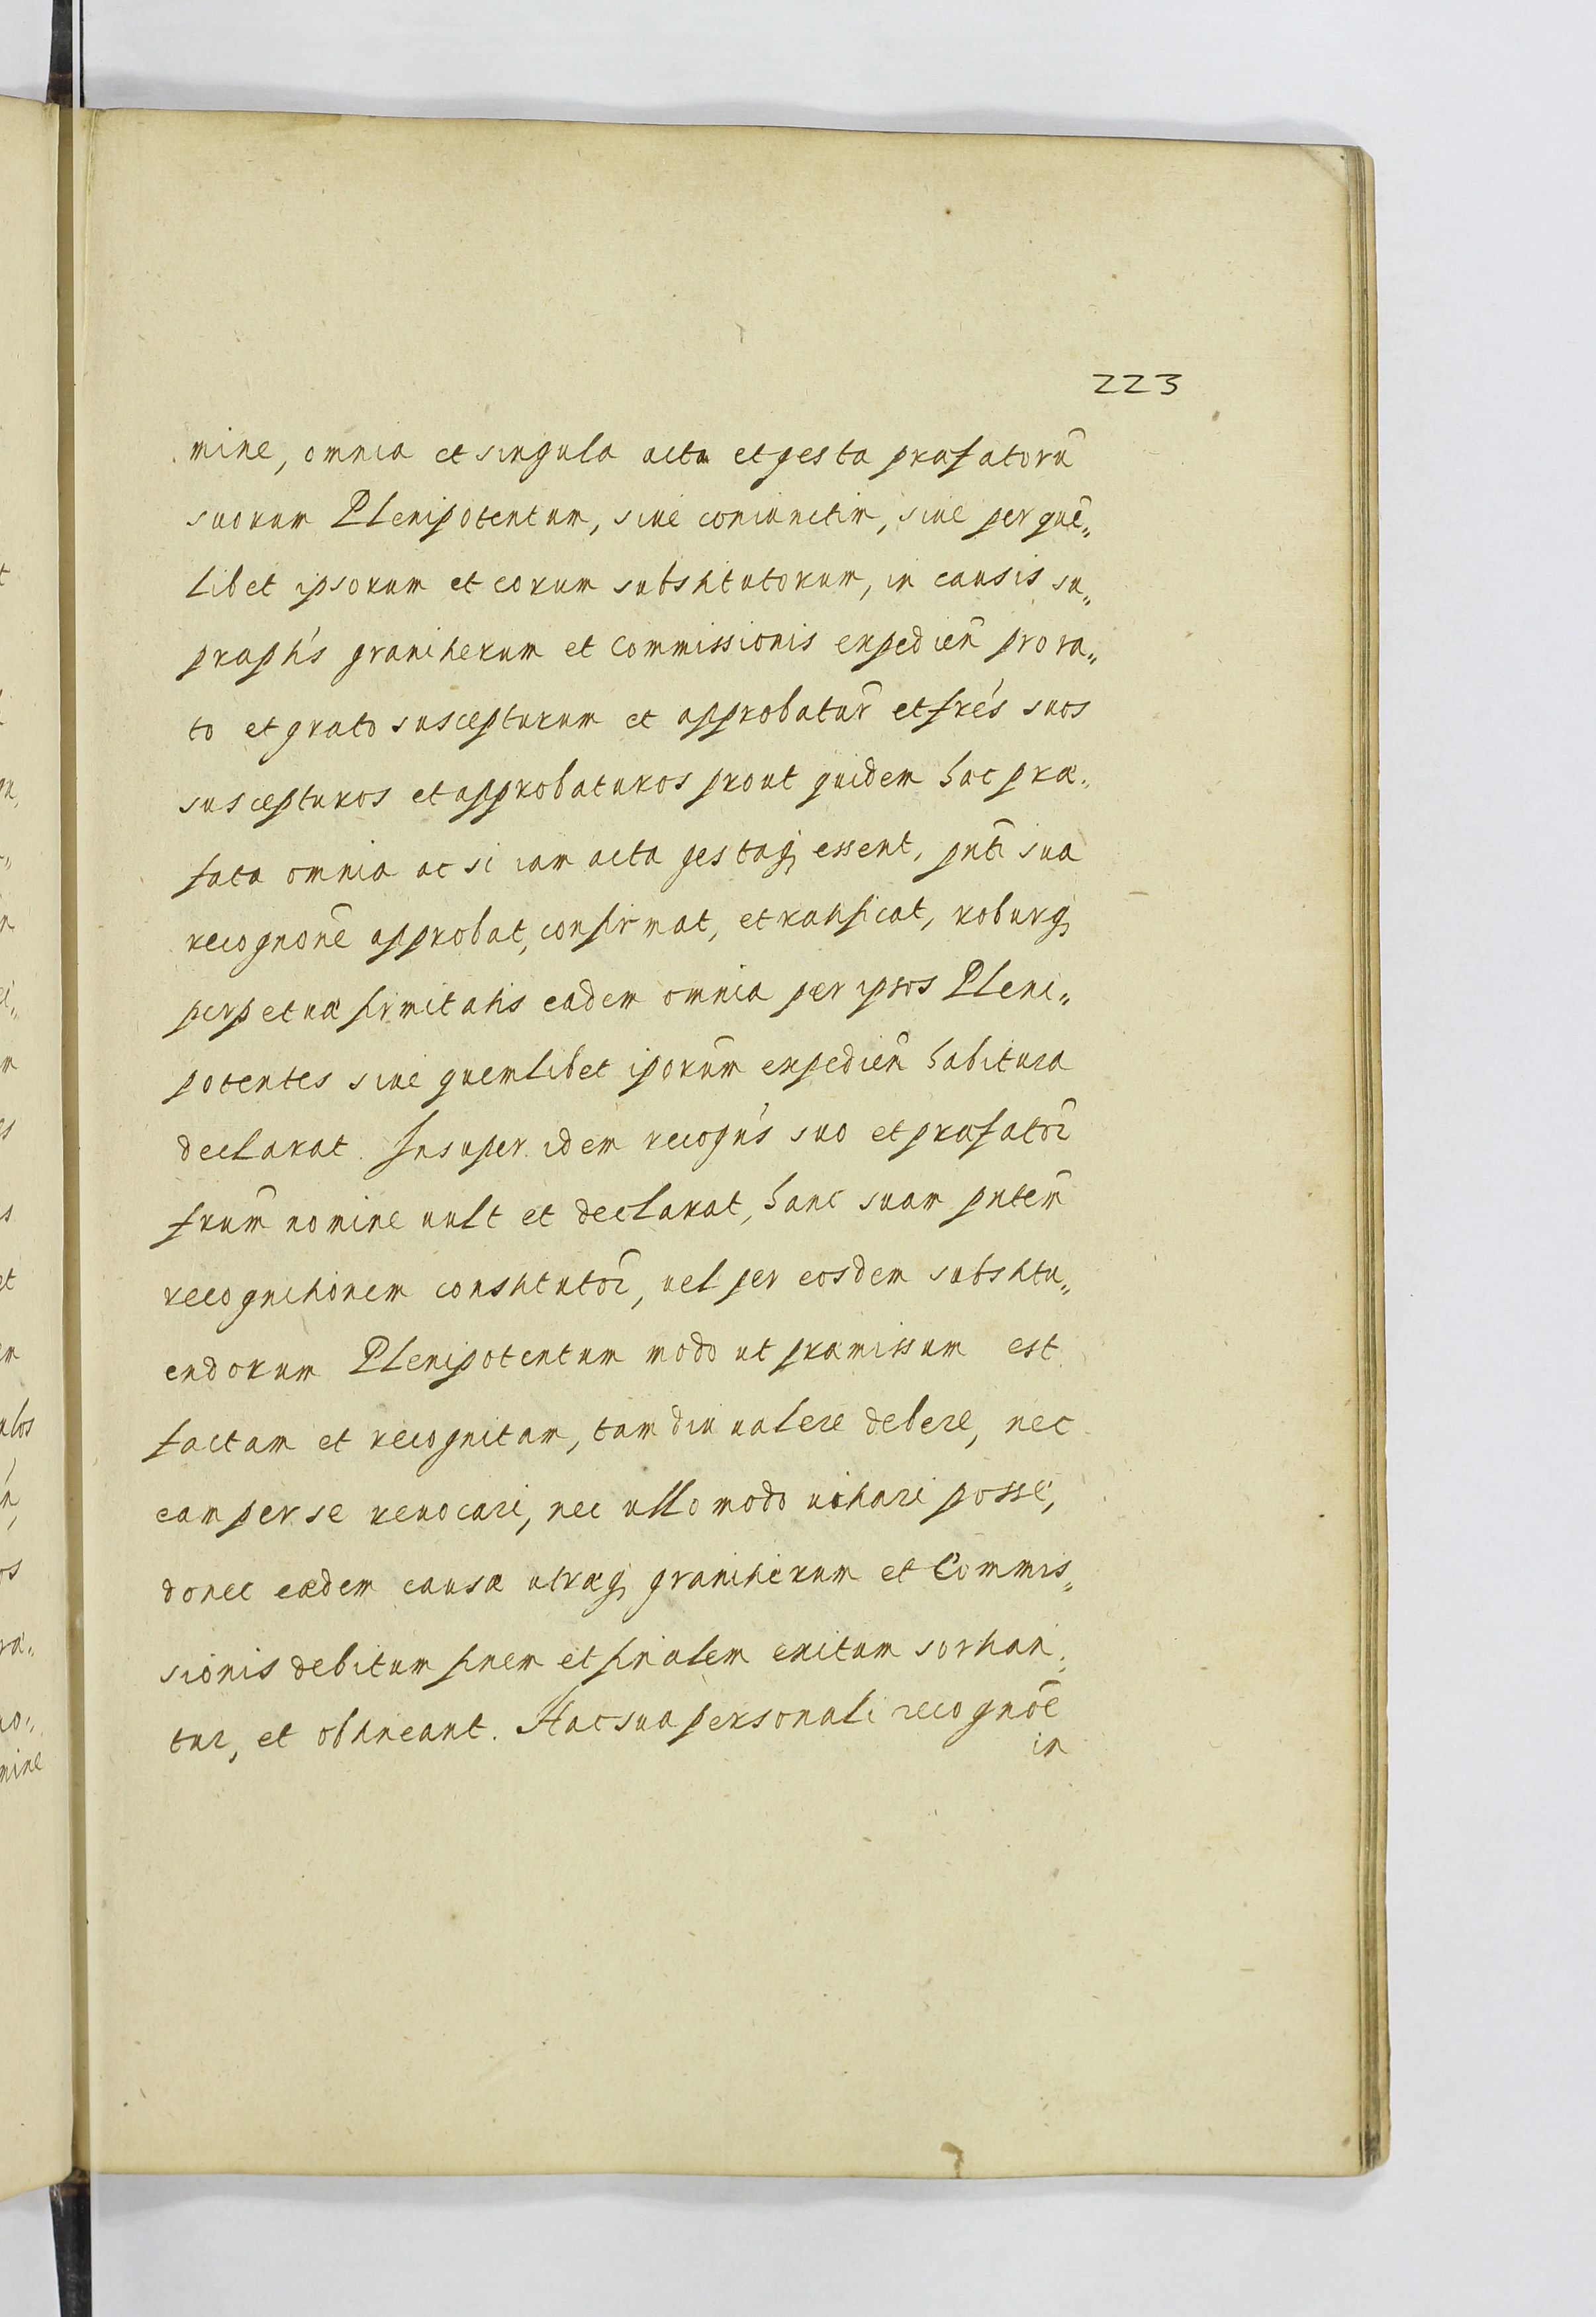 223
mine, omnia et singula acta et gesta præfatorū
suorum Plenipotentum, siue coniunctim, siue per quē„
libet ipsorum et eorum substitutorum, in causis su„
praptis granitierum et Commissionis expedien̄ pro ra„
to et grato suscepturum et approbatur̄ et fres suos
suscepturos et approbaturos prout quidem hac præ„
fata omnia ac si iam acta gestaq, essent, pnti sua
recognone approbat, confirmat, et ratificat, roburq,
perpetuæ firmitatis eadem omnia per ipsos Pleni„
potentes siue quemlibet iporum expedien̄ habitura
declarat. Insuper idem recogns suo et præfator̄
frum nomine uult et declarat, hanc suam pntem
recognitionem constitutor̄, uel per eosdem substitu„
endorum Plenipotentum modo ut præmissum est
factam et recognitam, tam diu ualere debere, nec
eam per se reuocari, nec ullo modo uitiari posse,
donec eædem causæ utræq, granitierum et Commis„
sionis debitum finem et finalem exitum sortian„
tur, et obtineant. Hac sua personali recognoe
in